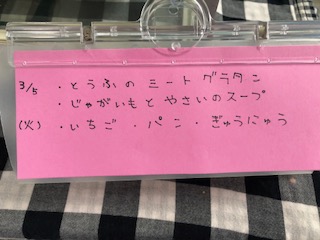 3/5 ・とうふのミートグラタン
・じゃがいもとやさいのスープ
(火) ・いちご・パン・ぎゅうにゅう